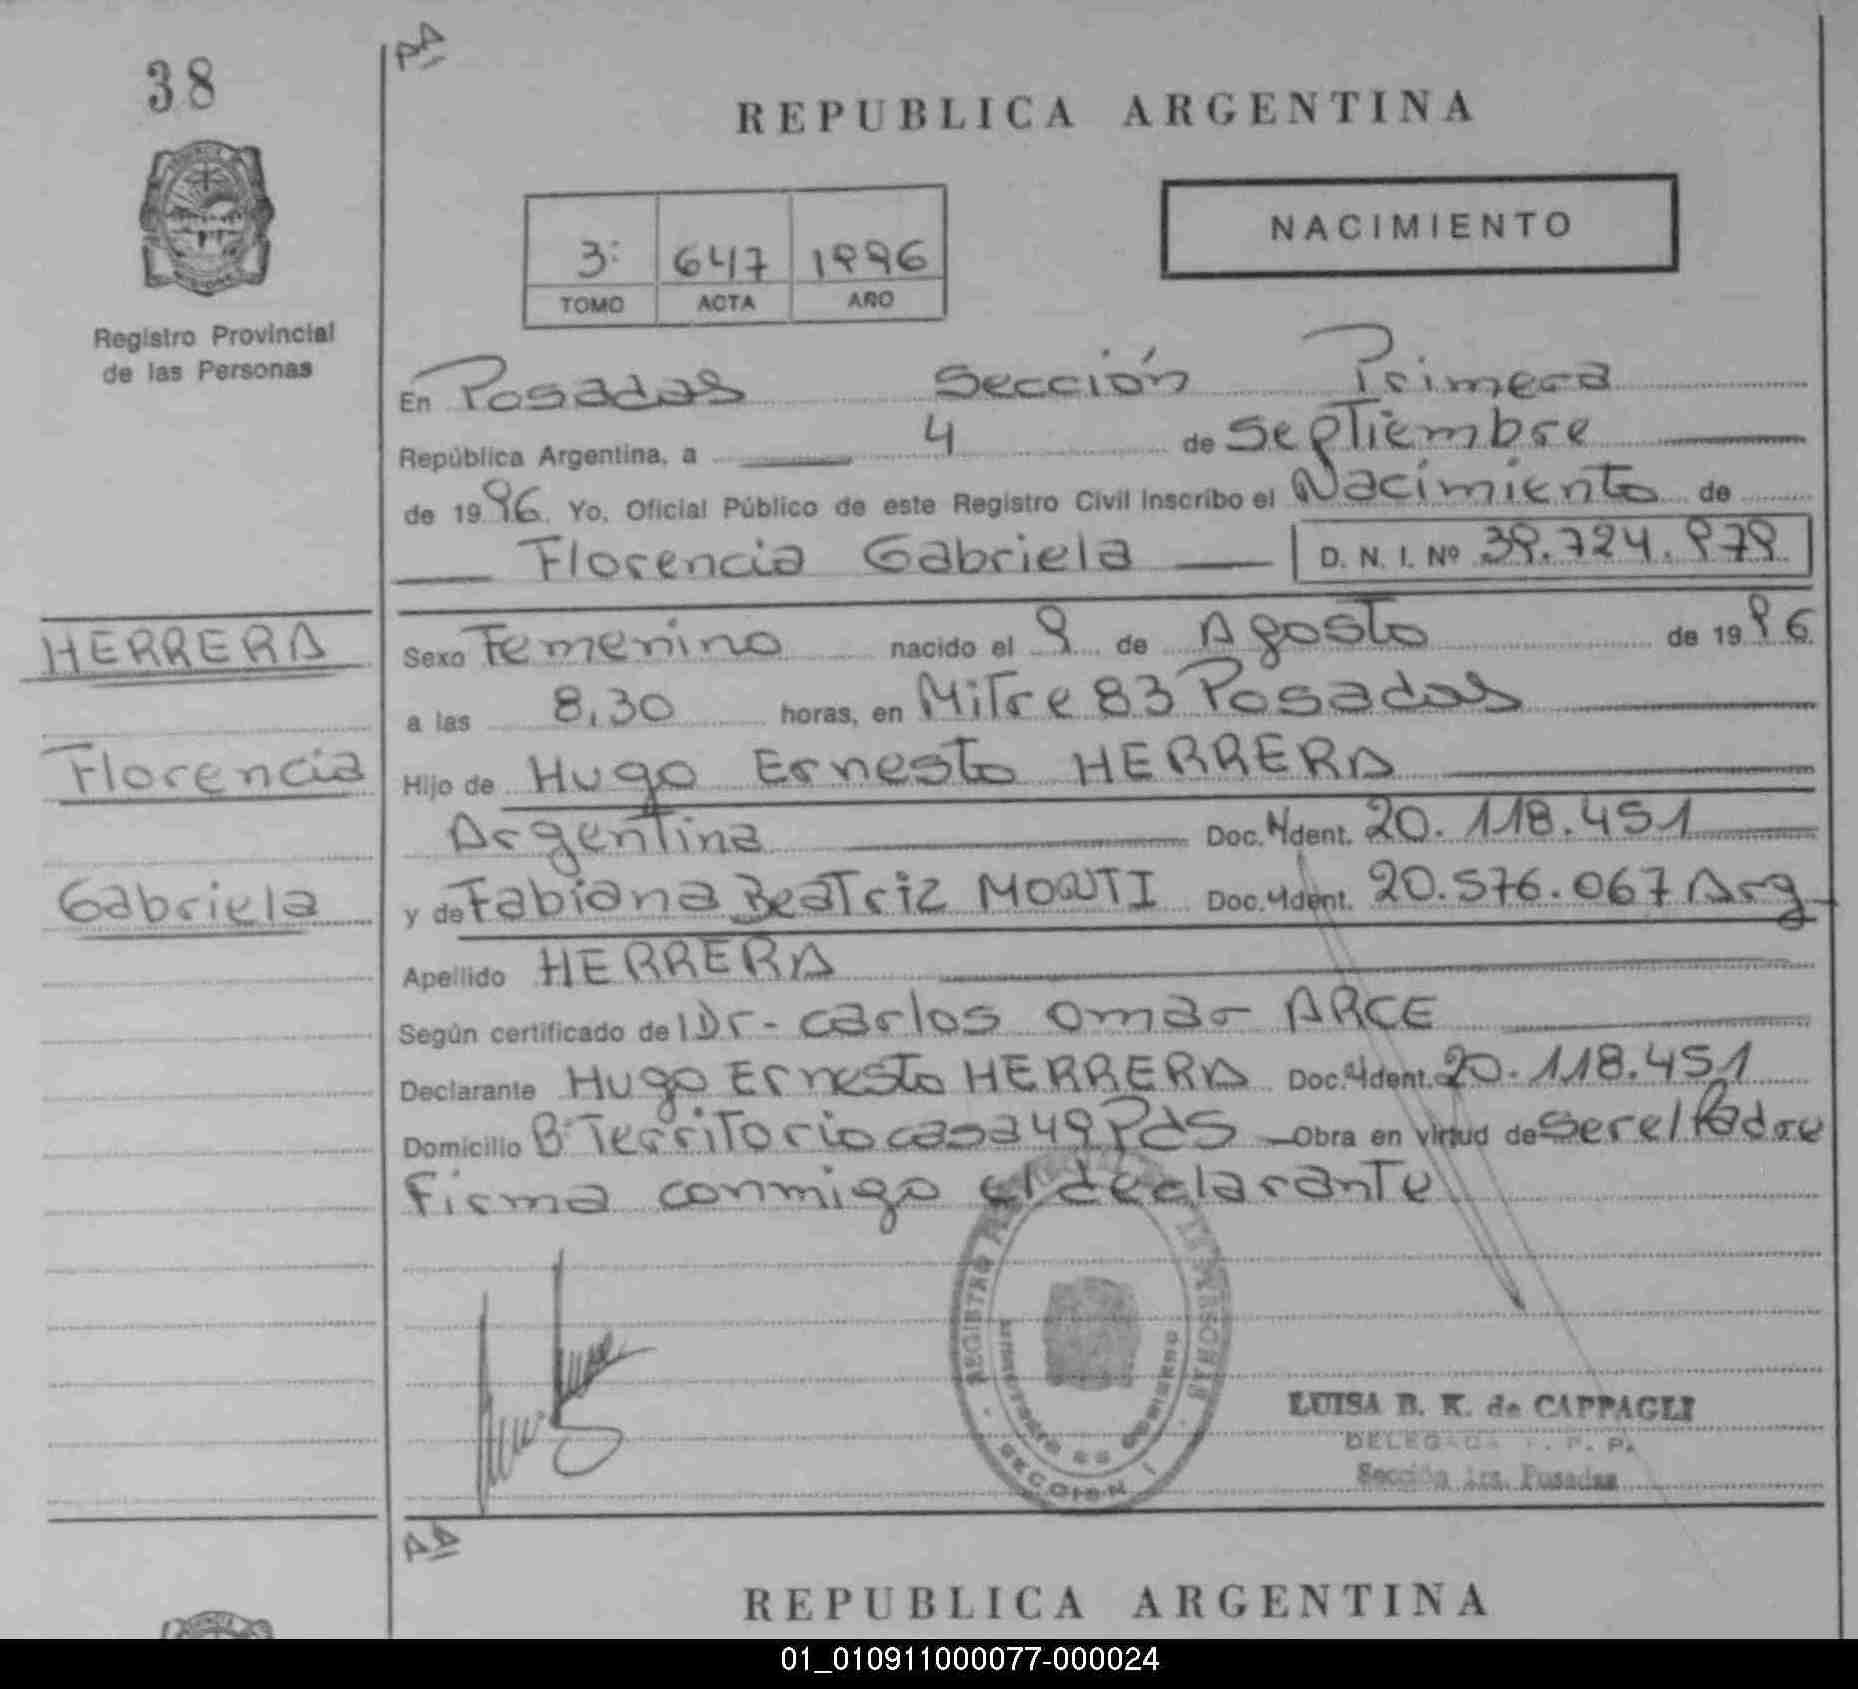 38
REPUBLICA ARGENTINA
NACIMIENTO
3: 647 1996
TOMO ACTA AÑO
Registro Provincial
de las Personas
En Posadas Sección Primera
República Argentina, a 4 de Septiembre
de 1996. Yo, Oficial Público de este Registro Civil inscribo el Nacimiento de
Florencia Gabriela D. N. I. Nº 39.724.979
HERRERA
Sexo Femenino nacido el 9 de Agosto de 1996.
a las 8,30 horas, en Mitre 83 Posadas
Florencia
Hijo de Hugo Ernesto HERRERA
Argentina Doc. Ident. 20.118.451
Gabriela
y de Fabiana Beatriz Doc. Ident. 20.576.067 Arg
Apellido HERRERA
Según certificado de Dr. Carlos Omar ARCE
Declarante Hugo Ernesto HERRERA Doc. Ident. 20.118.451
Domicilio Bº Territorio casa 49 Pdas Obra en virtud de ser el Padre
Firma conmigo el declarante
REGISTRO DE LAS PERSONAS
SECCION I
LUISA B. K. de CAPPAGLI
DELEGADA R. P. P.
Sección 1ra. Posadas
REPUBLICA ARGENTINA
01_010911000077-000024